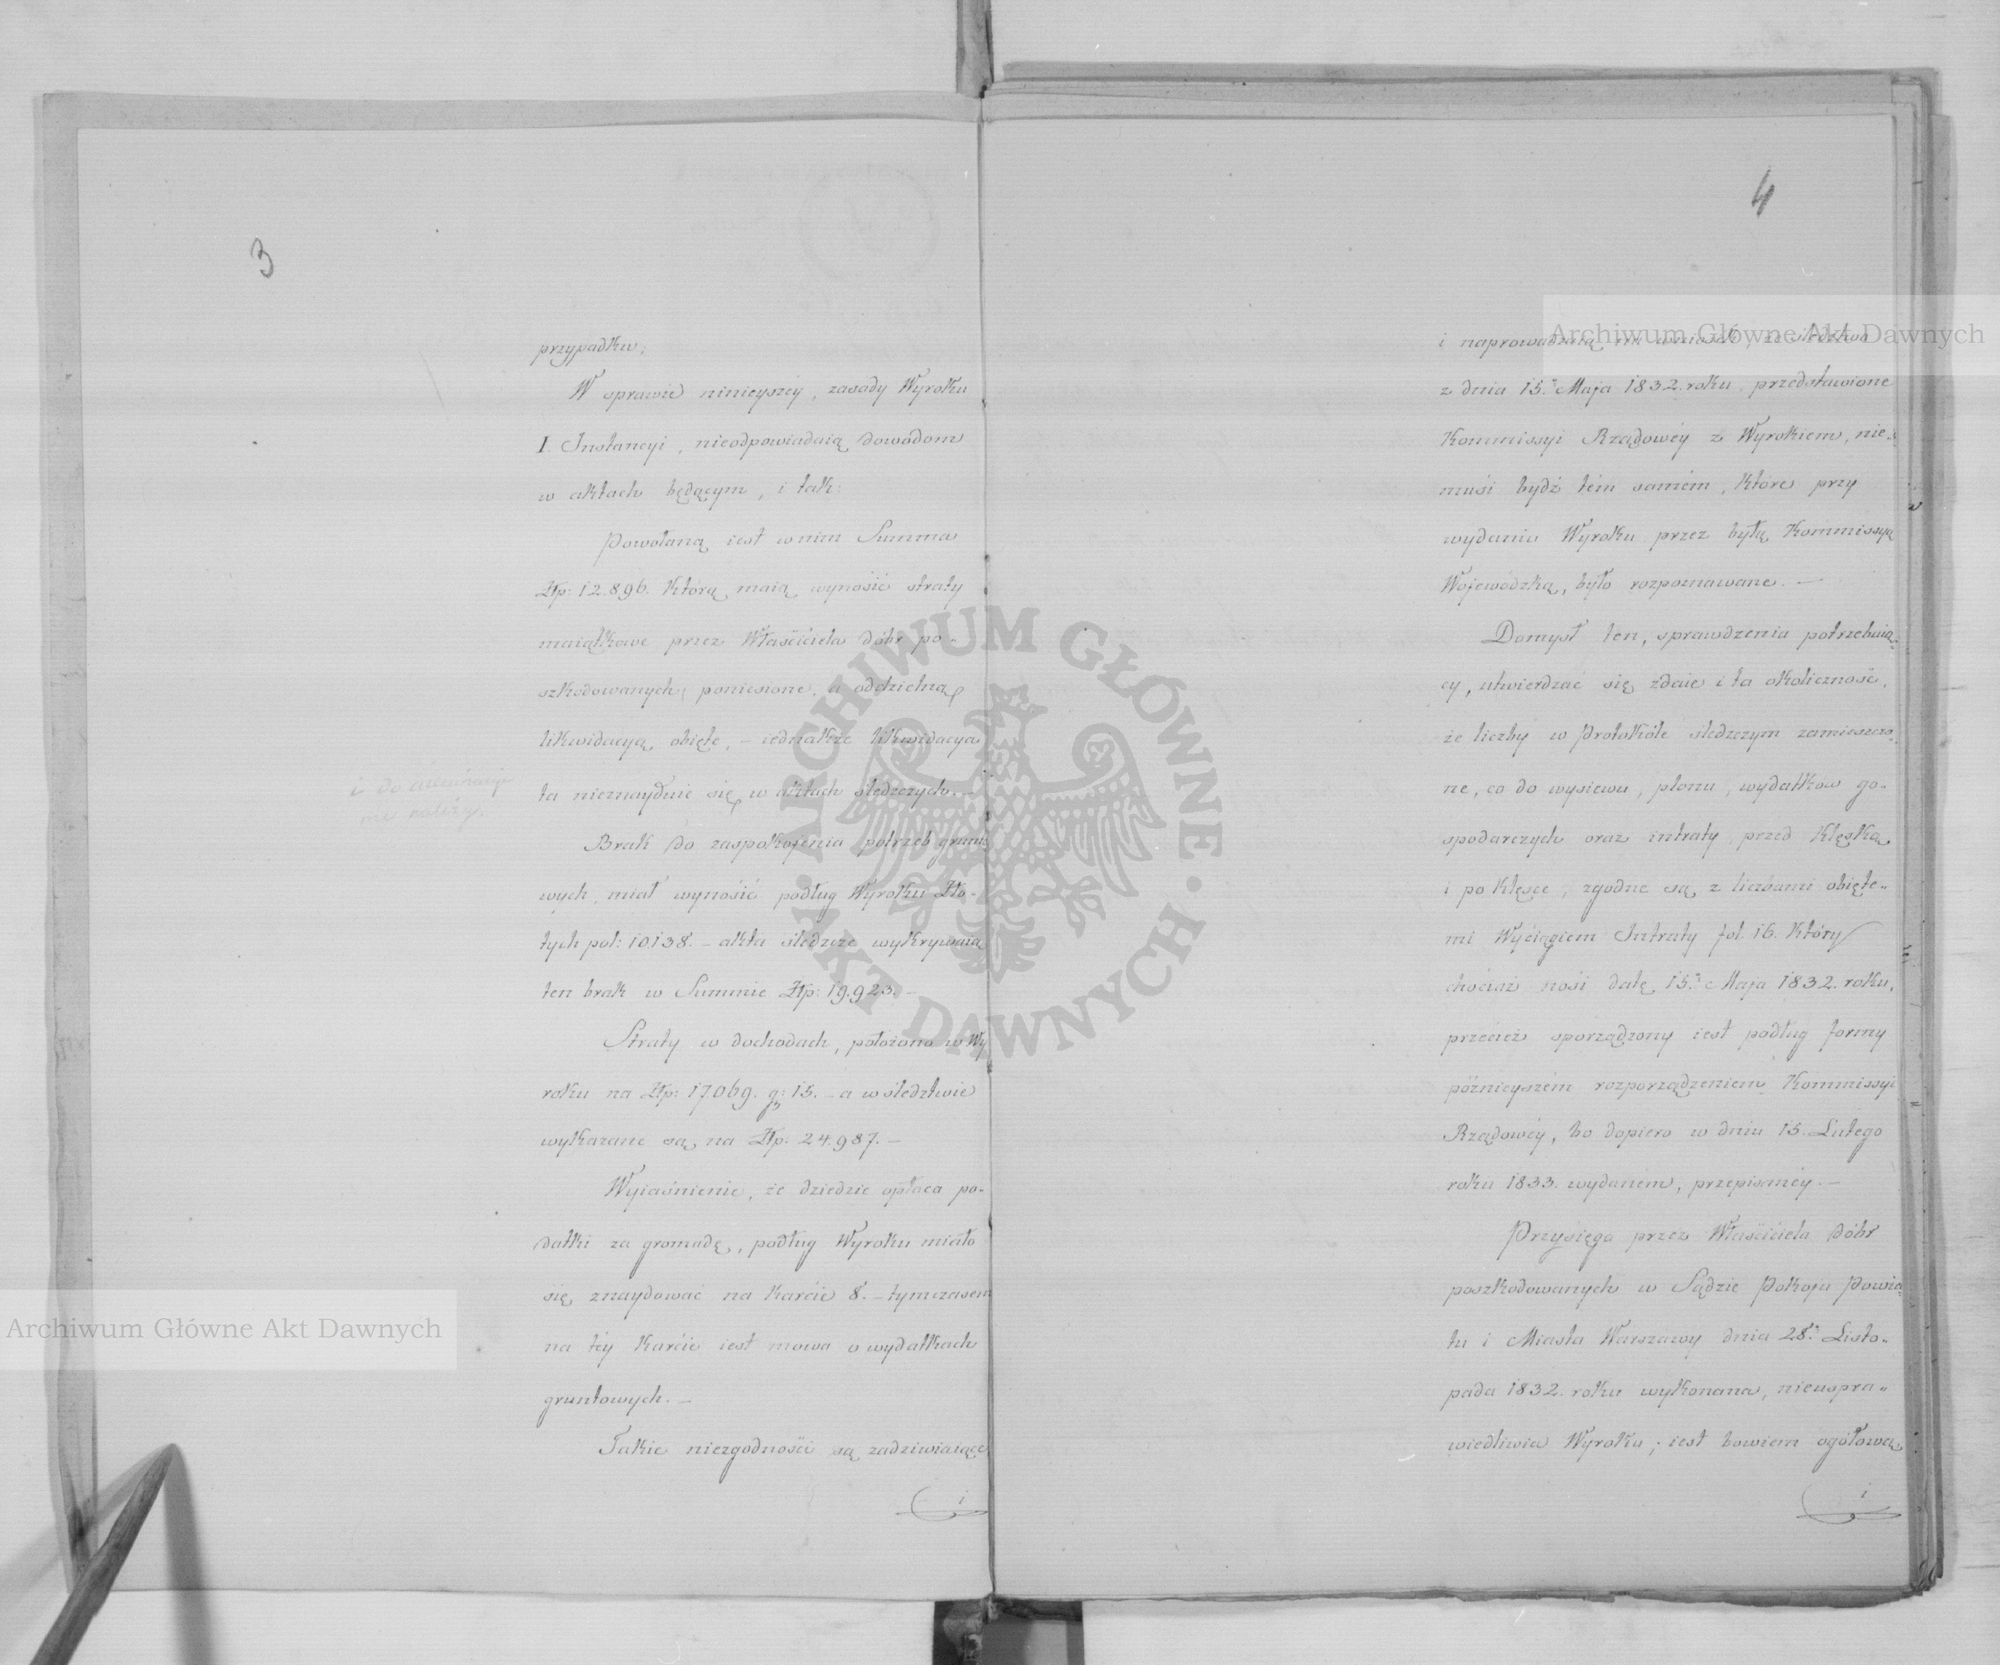 3
przypadku;
W sprawie ninieyszéy, zasady Wyroku
I. Instancyi, nieodpowiadaią dowodom
w aktach będącym, i tak:
Powołaną iest w nim Summa
Złp: 12.896. którą maią wynosić straty
maiątkowe przez Właściciela dóbr po-
szkodowanych poniesione, a oddzielną
likwidacyą obięte, – iednakże likwidacya
ta nieznayduie się w aktach śledczych. –
i do
nie należy.
Brak do zaspokojenia potrzeb grunto
wych, miał wynosić podług Wyroku Zło-
tych pol: 10.138. – akta śledcze wykrywaią
ten brak w Summie Złp: 19.923. –
Straty w dochodach, położono w Wy
roku na Złp: 17.069. gr: 15. – a w śledztwie
wykazane są na Złp. 24.987. –
Wyiaśnienie, że dziedzic opłaca po-
datki za gromadę, podług Wyroku miało
się znaydować na karcie 8. – tymczasem
na téy karcie iest mowa o wydatkach
gruntowych. –
Takie niezgodności są zadziwiaiące
i
4
i naprowadzaią na wniosek, że śledztwo
z dnia 15. Maja 1832. roku przedstawione
Kommissyi Rządowéy z Wyrokiem, nie-
musi bydź tém samém, które przy
wydaniu Wyroku przez byłą Kommissyą
Wojewódzką, było rozpoznawane. –
Domysł ten, sprawdzenia potrzebuią-
cy, utwierdzać się zdaie i ta okoliczność,
że liczby w Protokóle śledczym zamieszczo-
ne, co do wysiewu, plonu, wydatków go-
spodarczych oraz intraty przed klęską
i po klęsce, zgodne są z liczbami obięte-
mi Wyciągiem Intraty fol. 16. który
chociaż nosi datę 15. Maja 1832. roku,
przecież sporządzony iest podług formy
późnieyszém rozporządzeniem Kommissyi
Rządowéy, bo dopiero w dniu 15. Lutego
roku 1833. wydaném, przepisanéy. –
Przysięga przez Właściciela dóbr
poszkodowanych w Sądzie Pokoju Powia-
tu i Miasta Warszawy dnia 28. Listo-
pada 1832. roku wykonana, nieuspra-
wiedliwia Wyroku; iest bowiem ogółową
i
Archiwum Główne Akt Dawnych
Archiwum Główne Akt Dawnych
ARCHIWUM GŁÓWNE · AKT DAWNYCH ·